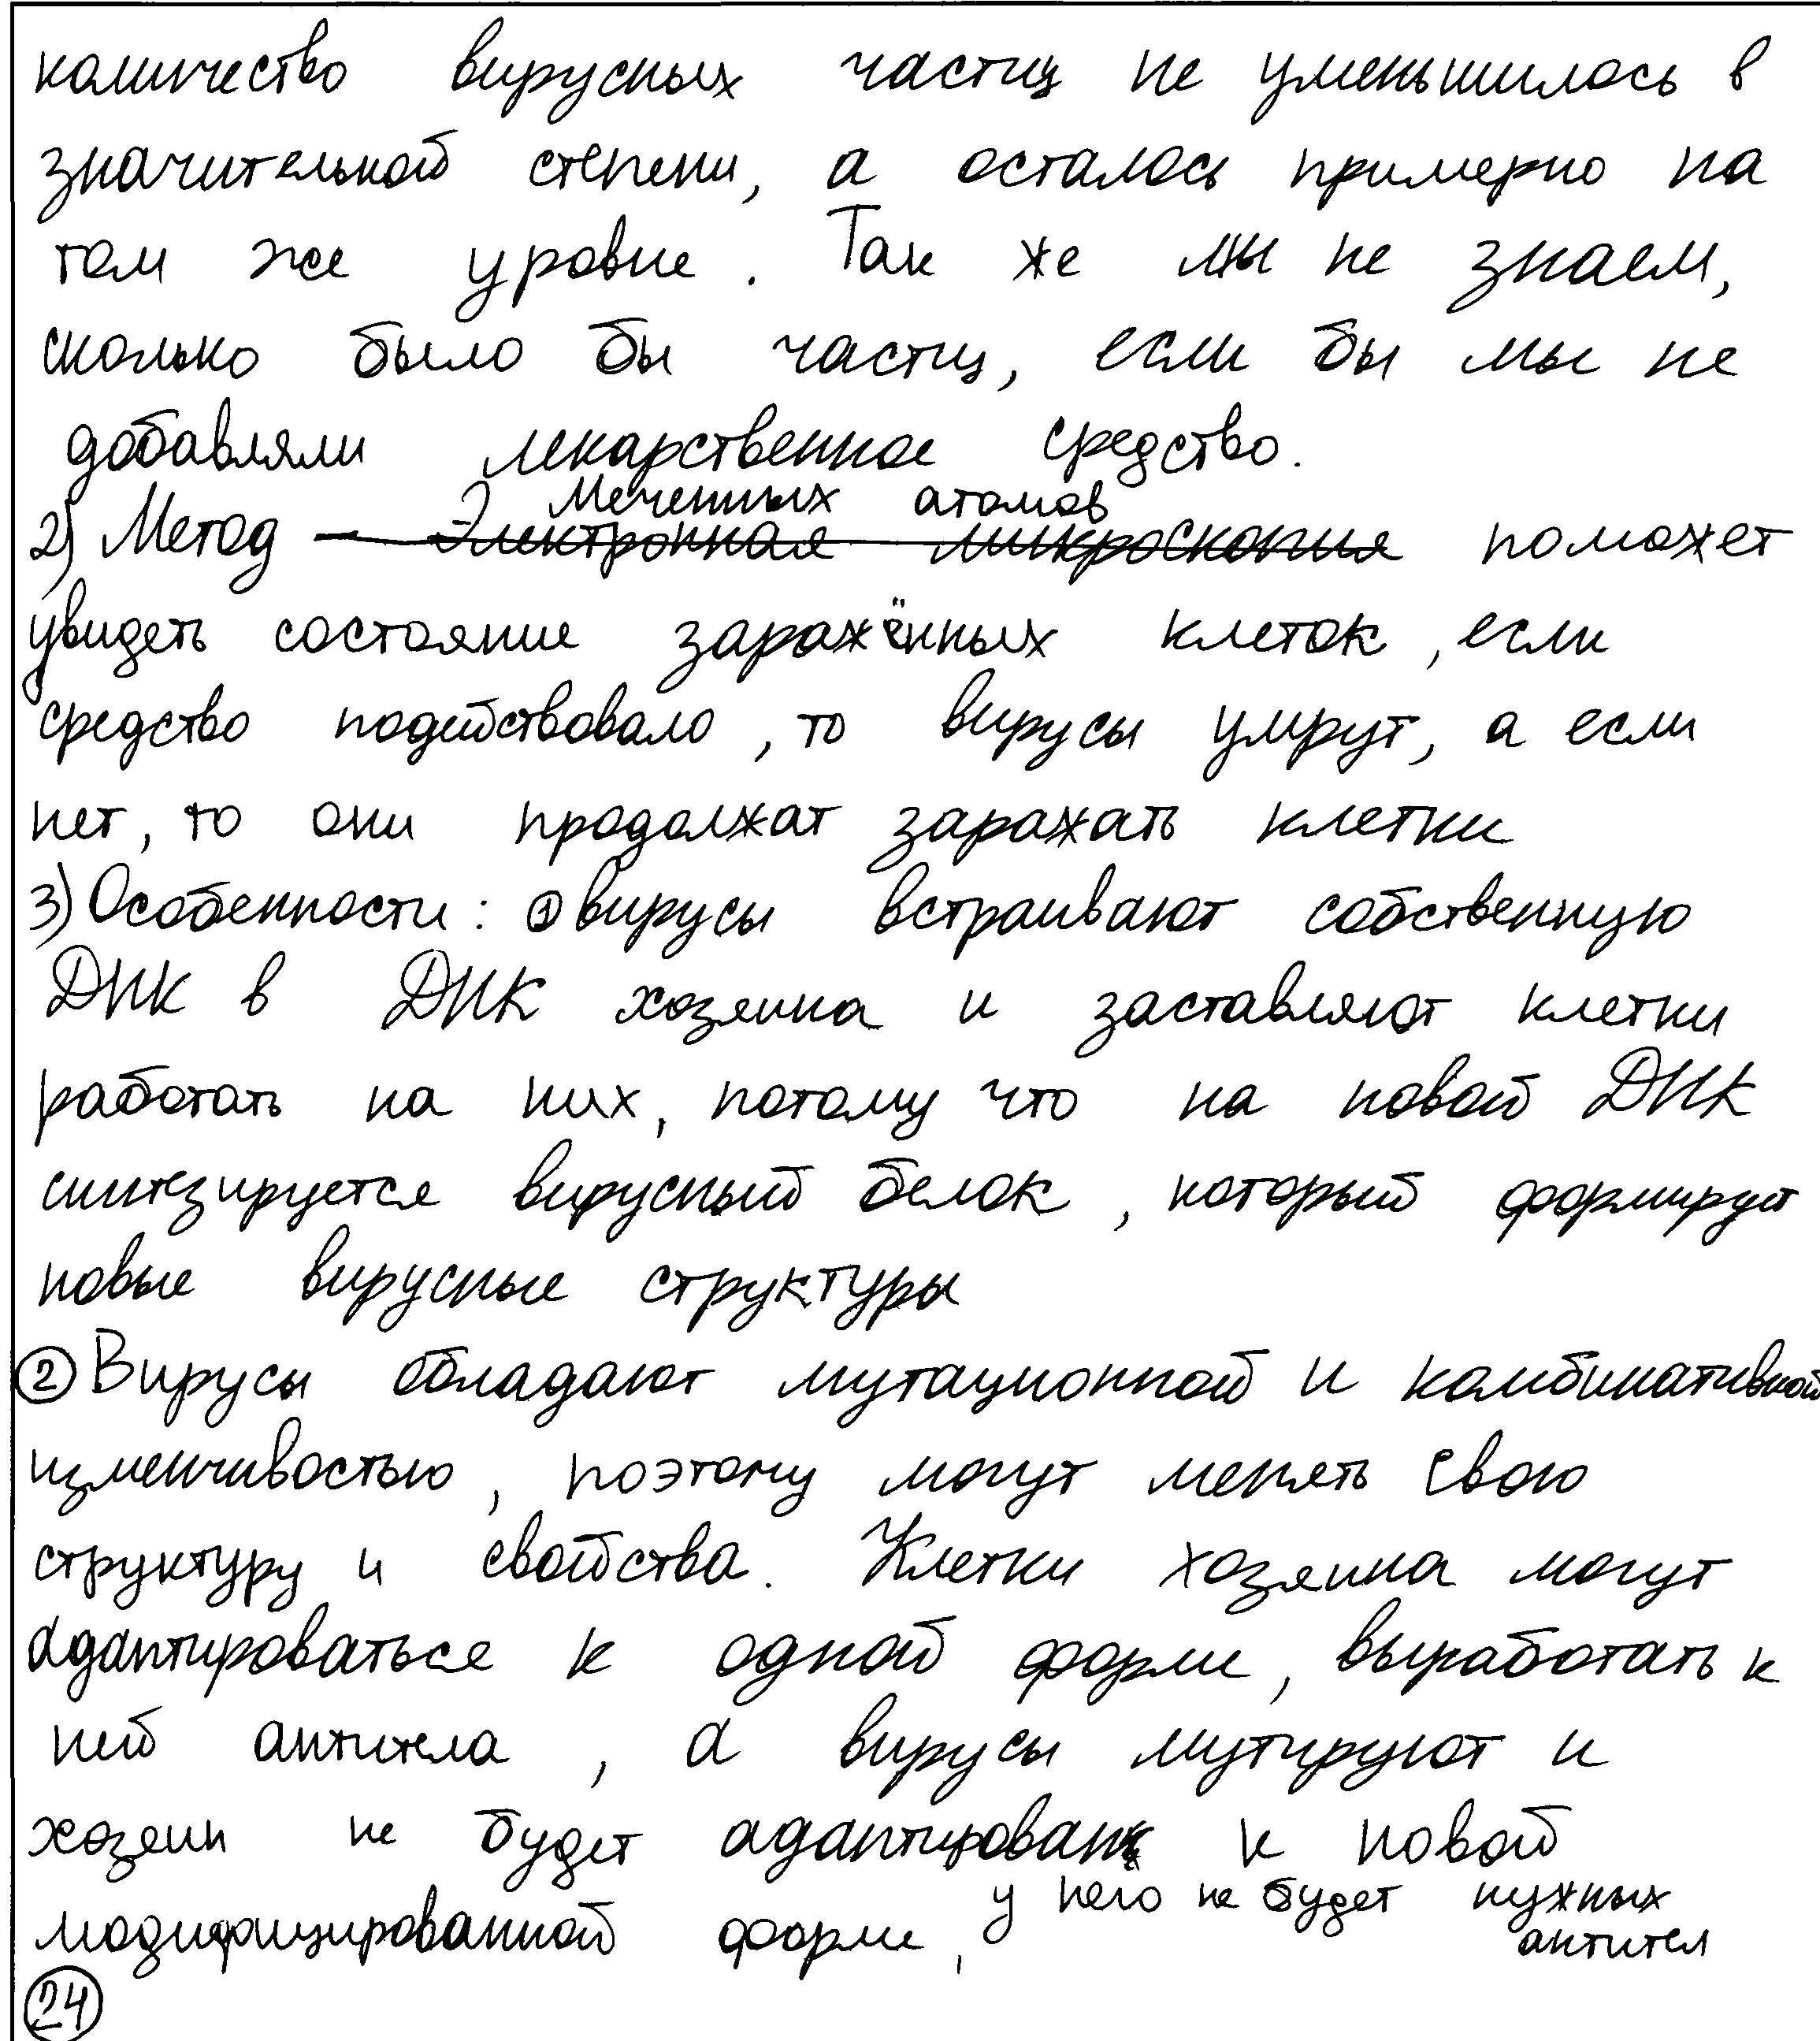 количество вирусных частиц не уменьшилось в
значительной степени, а осталось примерно на
том же уровне. Так же мы не знаем,
сколько было бы частиц, если бы мы не
добавляли лекарственное средство.
меченных атомов
2) Метод — Электронная микроскопия поможет
увидеть состояние заражённых клеток, если
средство подействовало, то вирусы умрут, а если
нет, то они продолжат заражать клетки
3) Особенности: ① вирусы встраивают собственную
ДНК в ДНК хозяина и заставляют клетки
работать на них, потому что на новой ДНК
синтезируется вирусный белок, который формирует
новые вирусные структуры
② Вирусы обладают мутационной и комбинативной
изменчивостью, поэтому могут менять свою
структуру и свойства. Клетки хозяина могут
адаптироваться к одной форме, выработать к
ней антитела, а вирусы мутируют и
хозяин не будет адаптирован к новой
модифицированной форме, у него не будет нужных
антител
24